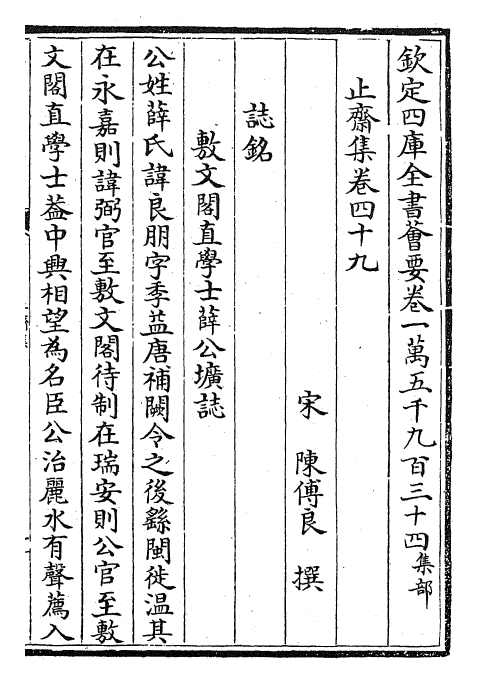 欽定四庫全書薈要卷一萬五千九百三十四集部
止齋集卷四十九
宋 陳傅良 撰
誌銘
敷文閣直學士薛公壙誌
公姓薛氏諱良朋字季益唐補闕令之後繇閩徙温其
在永嘉則諱弼官至敷文閣待制在瑞安則公官至敷
文閣直學士葢中興相望為名臣公治麗水有聲薦入